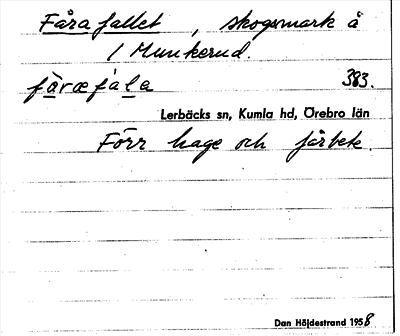 Fårafallet, skogsmark å
1 Munkerud.
383.
Lerbäcks sn, Kumla hd, Örebro län
Förr hage och fårbete.
Dan Höjdestrand 1958